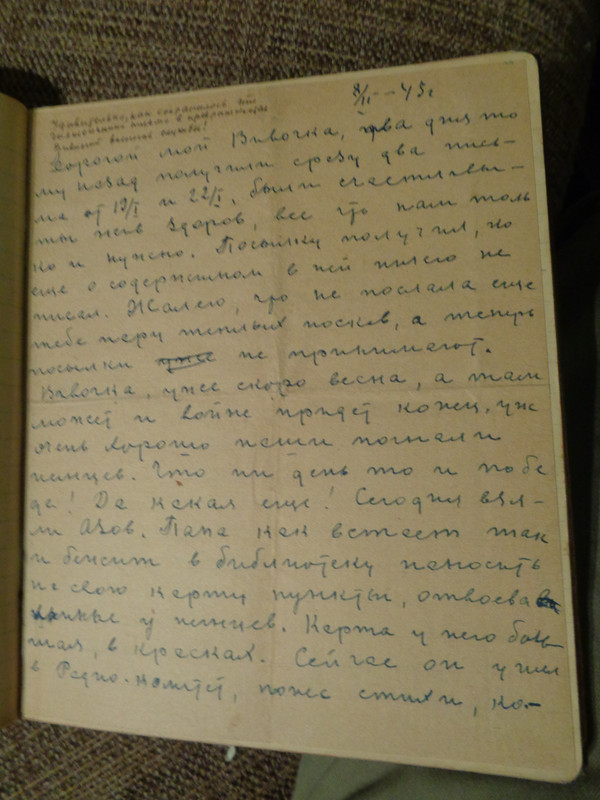 Удивительно, как сохранилось это
письмо в
Вивиной военной службы!
8/II – 43 г
Дорогой мой Вивочка, два дня то
му назад получили сразу два пись-
ма от 19/I и 22/I, были счастливы –
ты жив здоров, все что нам толь
ко и нужно. Посылку получил, но
еще о содержимом в ней ничего не
писал. Жалею, что не послала еще
тебе пару теплых носков, а теперь
посылки уже не принимают.
Вивочка, уже скоро весна, а там
может и войне придет конец, уж
очень хорошо наши погнали
немцев. Что ни день то и побе
да! Да какая еще! Сегодня взя-
ли Азов. Папа как встает так
и бежит в библиотеку наносить
на свою карту пункты, отвоеван
нные у немцев. Карта у него боль
шая, в красках. Сейчас он ушел
в Радио-комитет, понес стихи, ко-